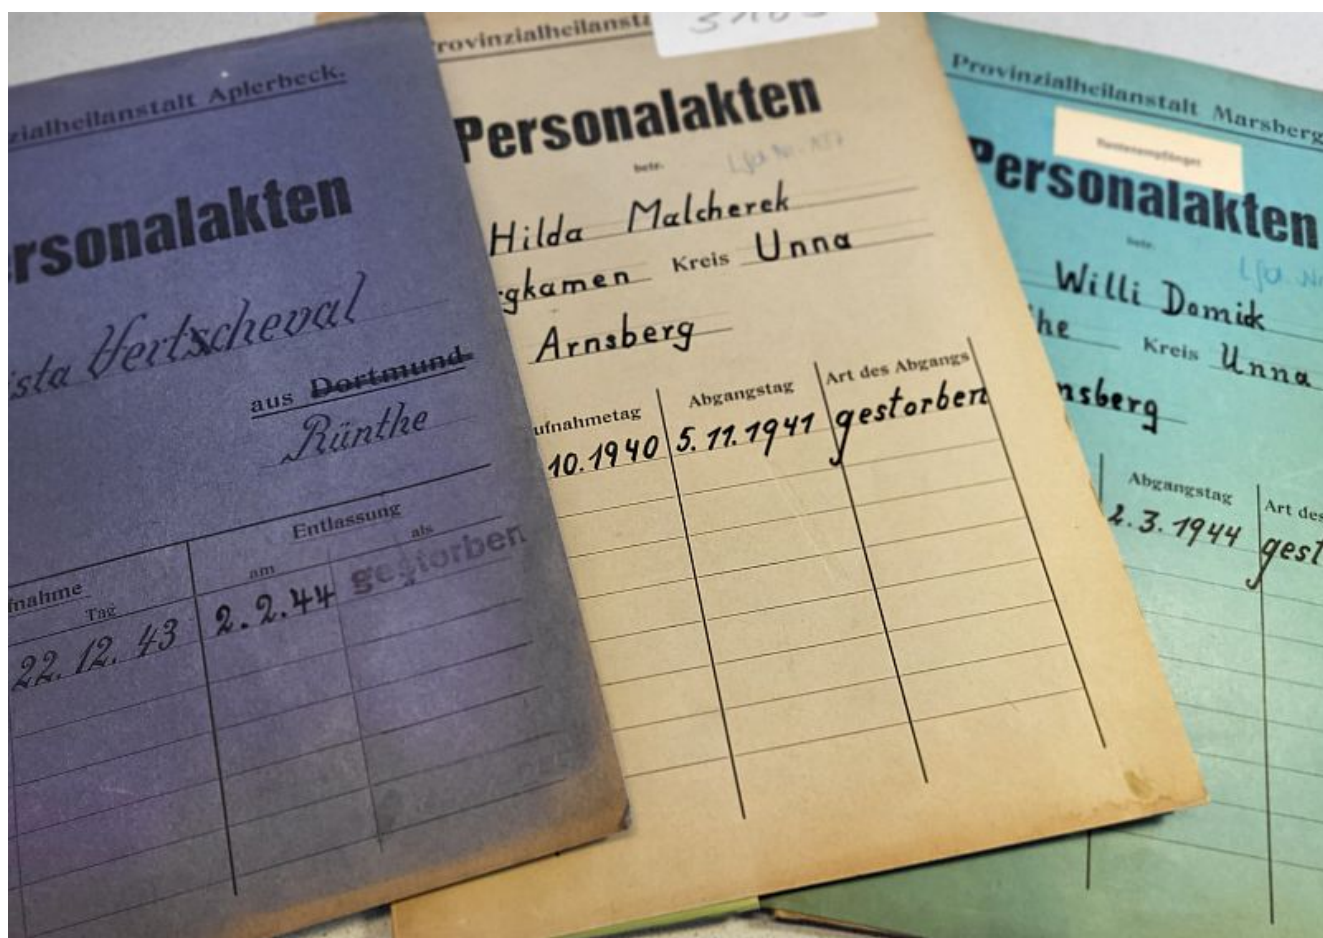 zialheilanstalt Aplerbeck.
ersonalakten
sta Vertscheval
aus Dortmund
Rünthe
fnahme
Tag
Entlassung
am
als
22. 12. 43
2.2.44
gestorben
rovinzialheilansta
Personalakten
betr.
Lfd. Nr.
Hilda Malcherek
gkamen Kreis Unna
Arnsberg
ufnahmetag
Abgangstag
Art des Abgangs
10.1940
5.11.1941
gestorben
Provinzialheilanstalt Marsberg
Rentenempfänger
Personalakten
betr.
Lfd. Nr
Willi Domik
he Kreis Unna
nsberg
Abgangstag
Art des
2.3.1944
gest